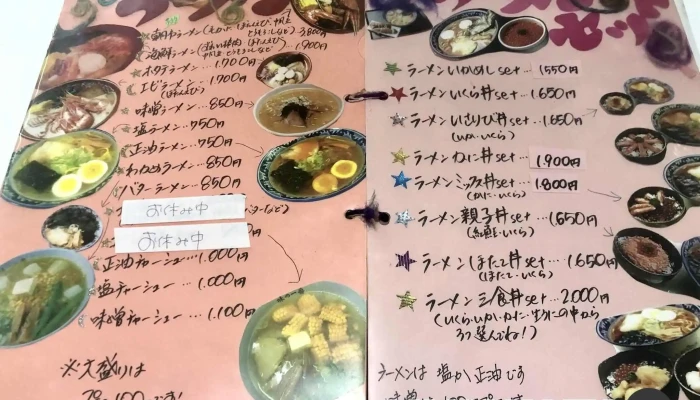 ラーメン…3800円
海鮮ラーメン…1900円
ホタテラーメン…1.700円
エビラーメン…1700円
味噌ラーメン…850円
塩ラーメン…750円
正油ラーメン…750円
わかめラーメン…850円
バターラーメン…850円
お休み中
お休み中
正油チャーシュー…1.000円
塩チャーシュー…1.000円
味噌チャーシュー…1.100円
※大盛りは
セット
ラーメンいかめしset…1550円
ラーメンいくら丼set…1.650円
ラーメンいさりび丼set…1.650円
(いか・いくら)
ラーメンかに丼set…1.900円
ラーメンミックス丼set…1.800円
(かに・いくら)
ラーメン親子丼set…1.650円
(紅鮭・いくら)
ラーメンほたて丼set…1.650円
(ほたて・いくら)
ラーメン三食丼set…2.000円
(いくら・いか・かに・生うにの中から
3つ選んでね!)
ラーメンは 塩か正油です